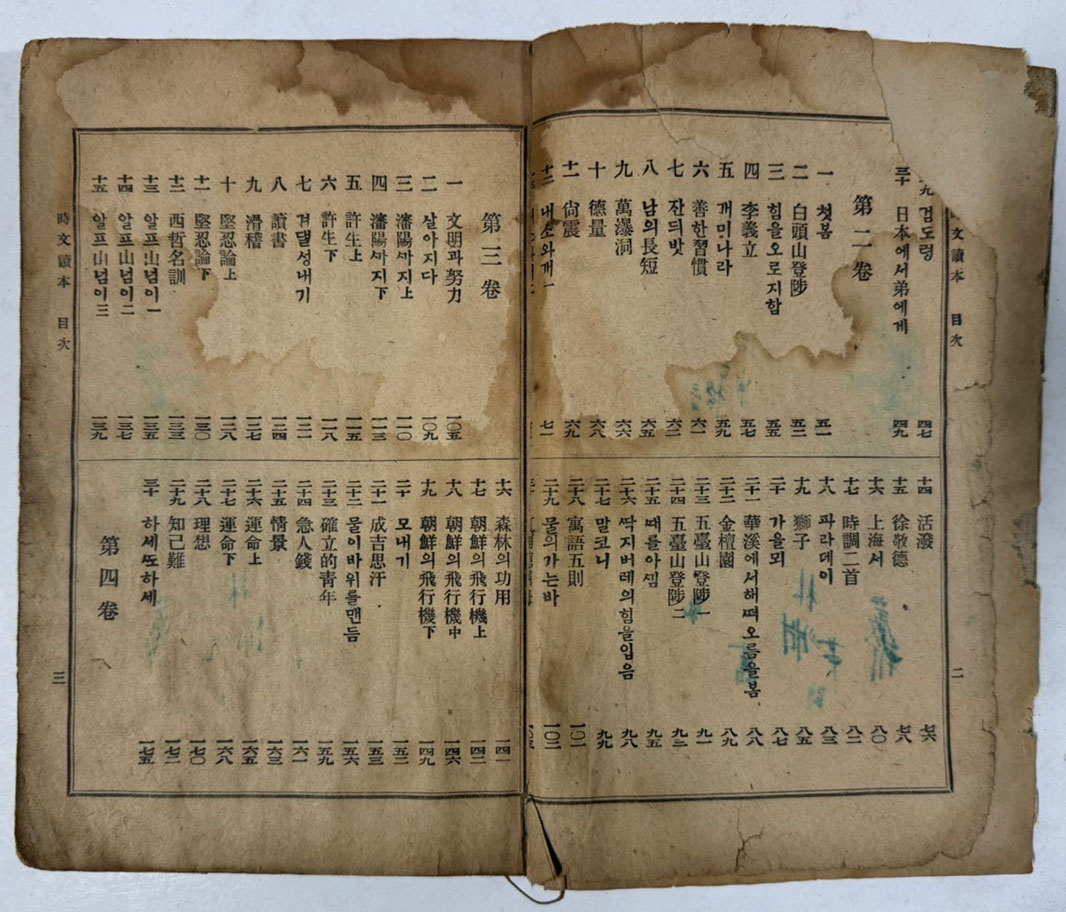 文讀本 目次
二
검도령 四七
三十 日本에서弟에게 四九
第二卷
一 첫봄 五一
二 白頭山登陟 五二
三 힘을오로지함 五五
四 李義立 五七
五 개미나라 五九
六 善한習慣 六一
七 잔듸밧 六二
八 남의長短 六五
九 萬瀑洞 六六
十 德量 六八
十一 尙震 六九
十二 내소와개一 七一
十四 活潑 七六
十五 徐敬德 七八
十六 上海서 八〇
十七 時調二首 八二
十八 파라데이 八三
十九 獅子 八五
二十 가을뫼 八七
二十一 華溪에서해ᄯᅥ오름을봄 八八
二十二 金檀園 八九
二十三 五臺山登陟一 九一
二十四 五臺山登陟二 九三
二十五 ᄯᅢ를아ᄭᅵᆷ 九五
二十六 ᄯᅡᆨ지버레의힘을입음 九八
二十七 말코니 九九
二十八 寓語五則 一〇一
二十九 물의가는바 一〇二
第三卷
一 文明과努力 一〇五
二 살아지다 一〇九
三 瀋陽ᄭᅡ지上 一一〇
四 瀋陽ᄭᅡ지下 一一三
五 許生上 一一五
六 許生下 一一八
七 겨댈성내기 一二一
八 讀書 一二四
九 滑稽 一二七
十 堅忍論上 一二八
十一 堅忍論下 一三〇
十二 西哲名訓 一三三
十三 알프山넘이一 一三五
十四 알프山넘이二 一三七
十五 알프山넘이三 一三九
十六 森林의功用 一四一
十七 朝鮮의飛行機上 一四二
十八 朝鮮의飛行機中 一四六
十九 朝鮮의飛行機下 一四九
二十 모내기 一五二
二十一 成吉思汗 一五三
二十二 물이바위를맨듬 一五六
二十三 確立的靑年 一五九
二十四 急人錢 一六一
二十五 情景 一六三
二十六 運命上 一六五
二十七 運命下 一六八
二十八 理想 一七〇
二十九 知己難 一七二
三十 하세ᄯᅩ하세 一七五
第四卷
時文讀本 目次
三